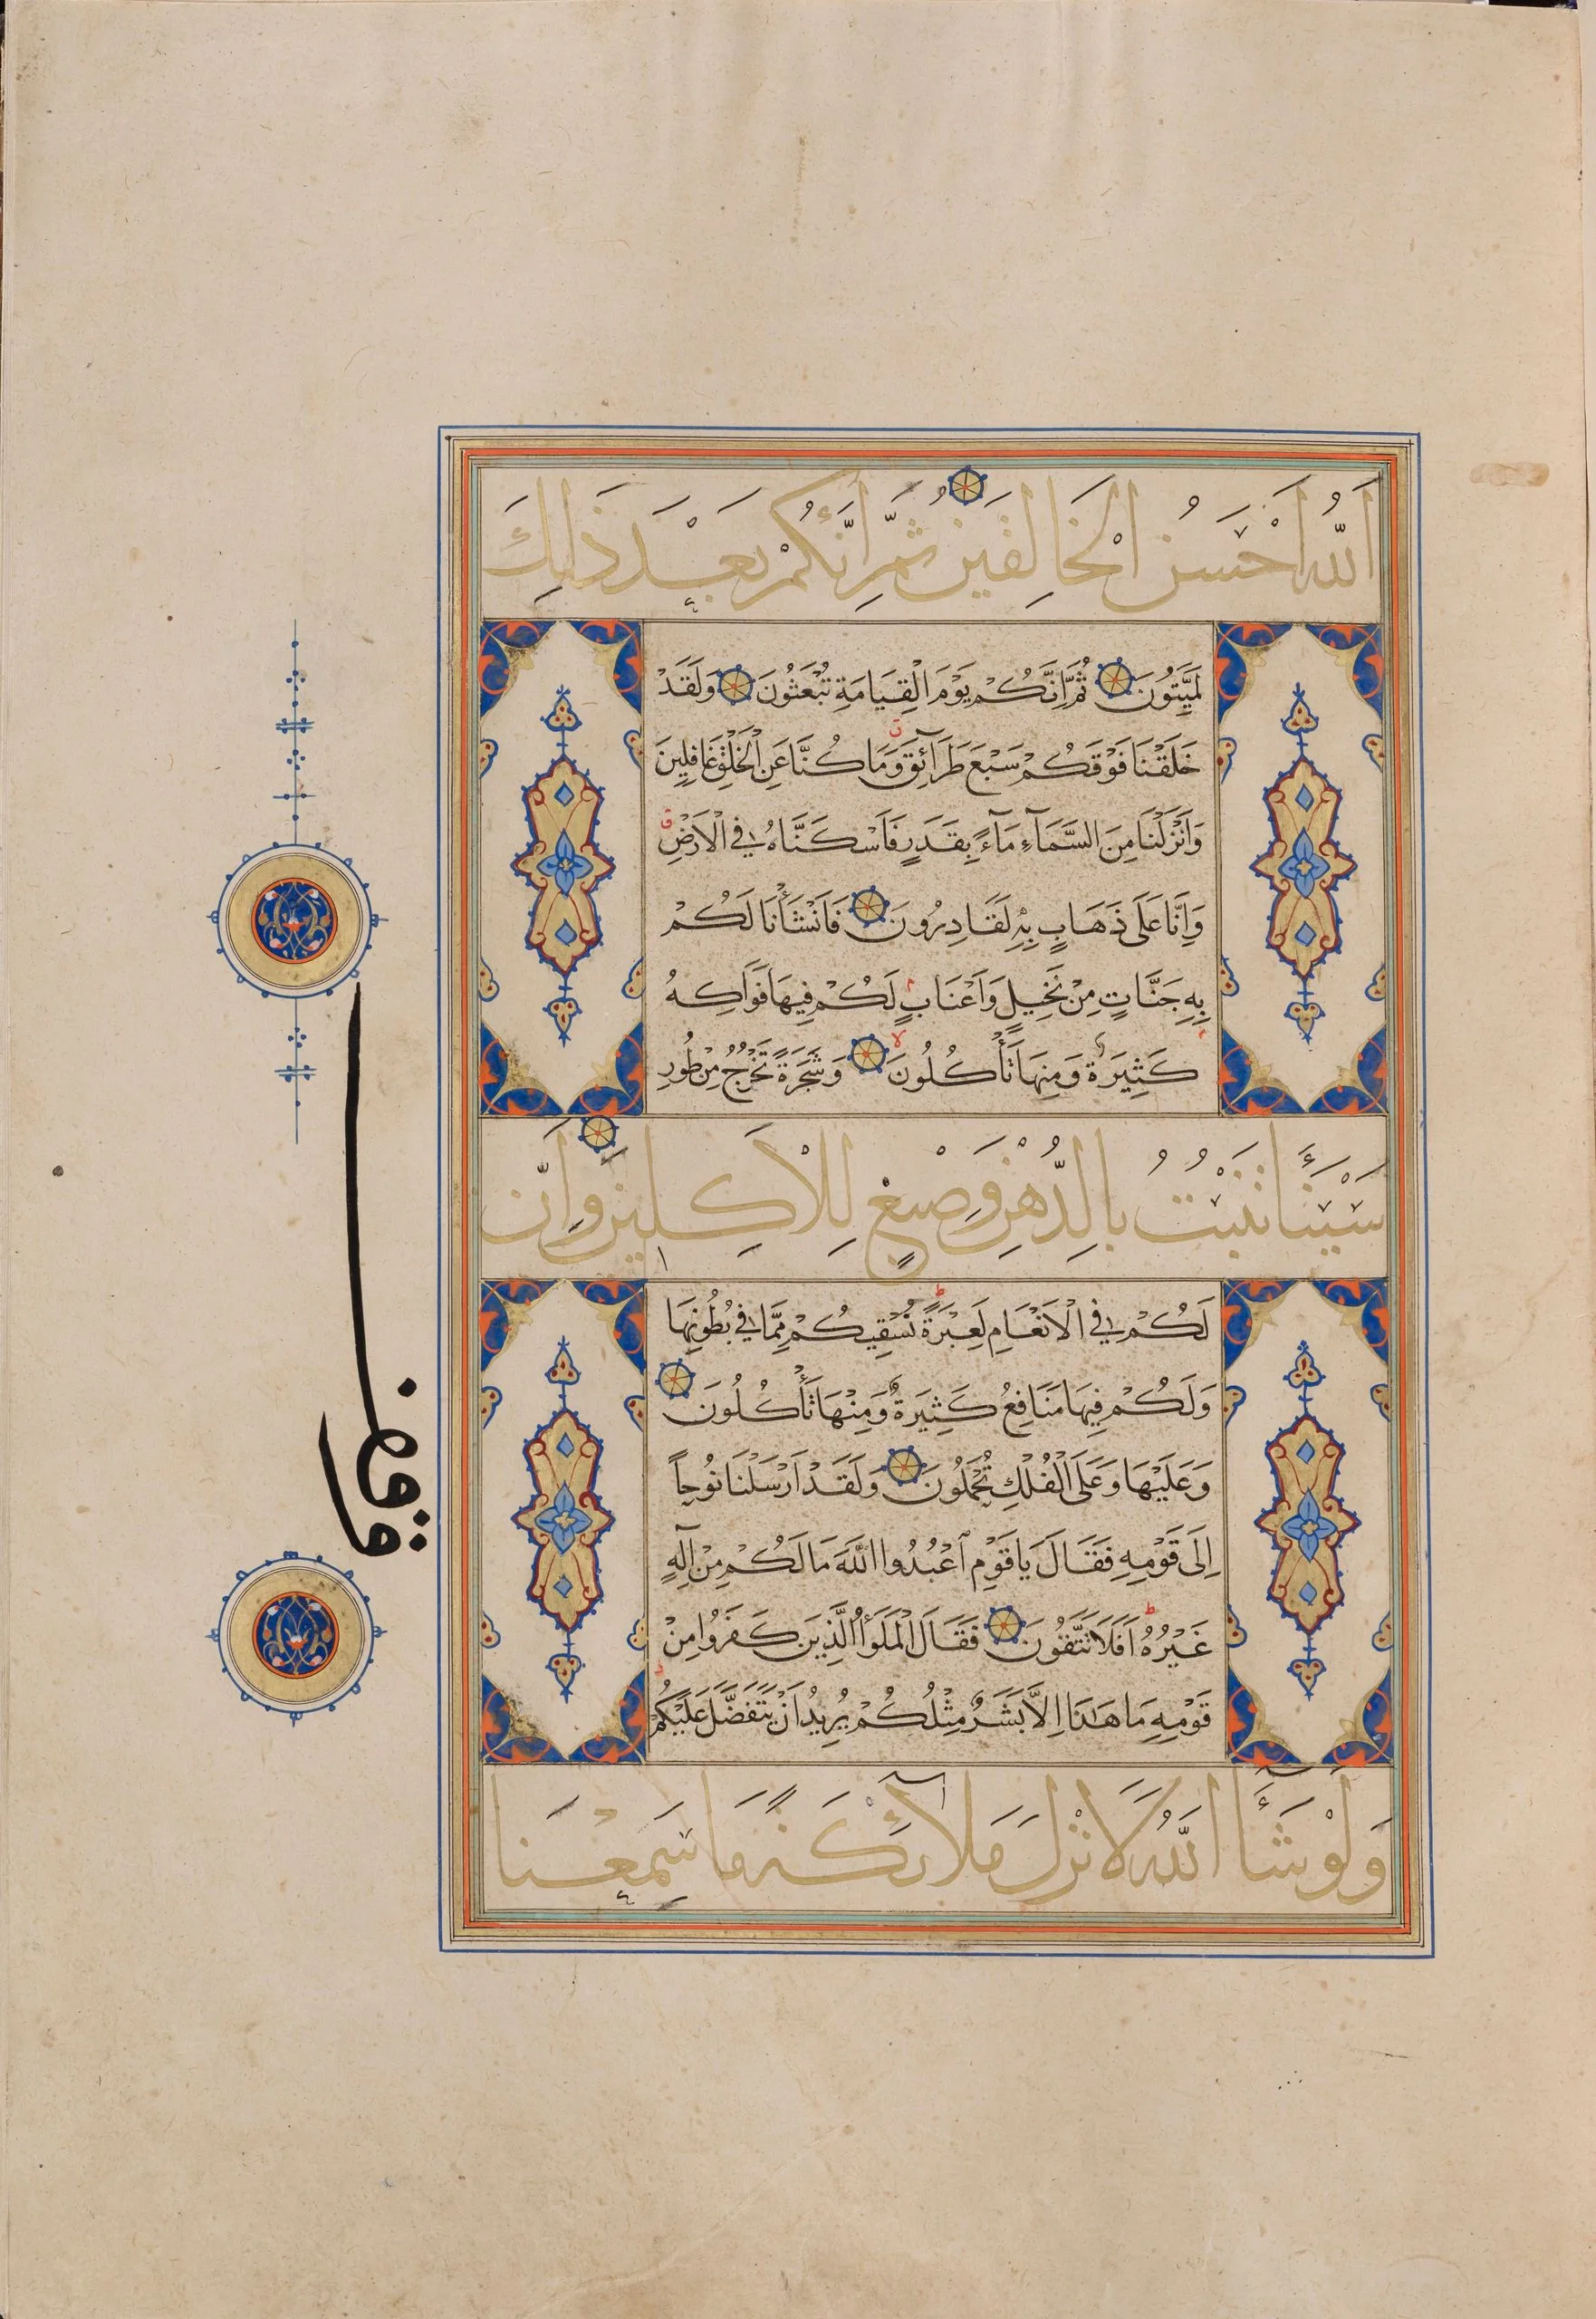 اَللّٰهُ اَحْسَنُ الْخَالِقِينَ ثُمَّ اِنَّكُمْ بَعْدَ ذٰلِكَ
لَمَيِّتُونَ ثُمَّ اِنَّكُمْ يَوْمَ الْقِيَامَةِ تُبْعَثُونَ وَلَقَدْ
خَلَقْنَا فَوْقَكُمْ سَبْعَ طَرَآئِقَ وَمَا كُنَّا عَنِ الْخَلْقِ غَافِلِينَ
وَاَنْزَلْنَا مِنَ السَّمَآءِ مَآءً بِقَدَرٍ فَاَسْكَنَّاهُ فِي الْاَرْضِ
وَاِنَّا عَلَى ذَهَابٍ بِهِ لَقَادِرُونَ فَاَنْشَأْنَا لَكُمْ
بِهِ جَنَّاتٍ مِنْ نَخِيلٍ وَاَعْنَابٍ لَكُمْ فِيهَا فَوَاكِهُ
كَثِيرَةٌ وَمِنْهَا تَأْكُلُونَ وَشَجَرَةً تَخْرُجُ مِنْ طُورِ
سَيْنَآءَ تَنْبُتُ بِالدُّهْنِ وَصِبْغٍ لِلْاٰكِلِينَ وَاِنَّ
لَكُمْ فِي الْاَنْعَامِ لَعِبْرَةً نُسْقِيكُمْ مِمَّا فِي بُطُونِهَا
وَلَكُمْ فِيهَا مَنَافِعُ كَثِيرَةٌ وَمِنْهَا تَأْكُلُونَ
وَعَلَيْهَا وَعَلَى الْفُلْكِ تُحْمَلُونَ وَلَقَدْ اَرْسَلْنَا نُوحاً
اِلَى قَوْمِهِ فَقَالَ يَا قَوْمِ اعْبُدُوا اللّٰهَ مَا لَكُمْ مِنْ اِلٰهٍ
غَيْرُهُ اَفَلَا تَتَّقُونَ فَقَالَ الْمَلَؤُا الَّذِينَ كَفَرُوا مِنْ
قَوْمِهِ مَا هٰذَا اِلَّا بَشَرٌ مِثْلُكُمْ يُرِيدُ اَنْ يَتَفَضَّلَ عَلَيْكُمْ
وَلَوْ شَآءَ اللّٰهُ لَاَنْزَلَ مَلَآئِكَةً مَا سَمِعْنَا